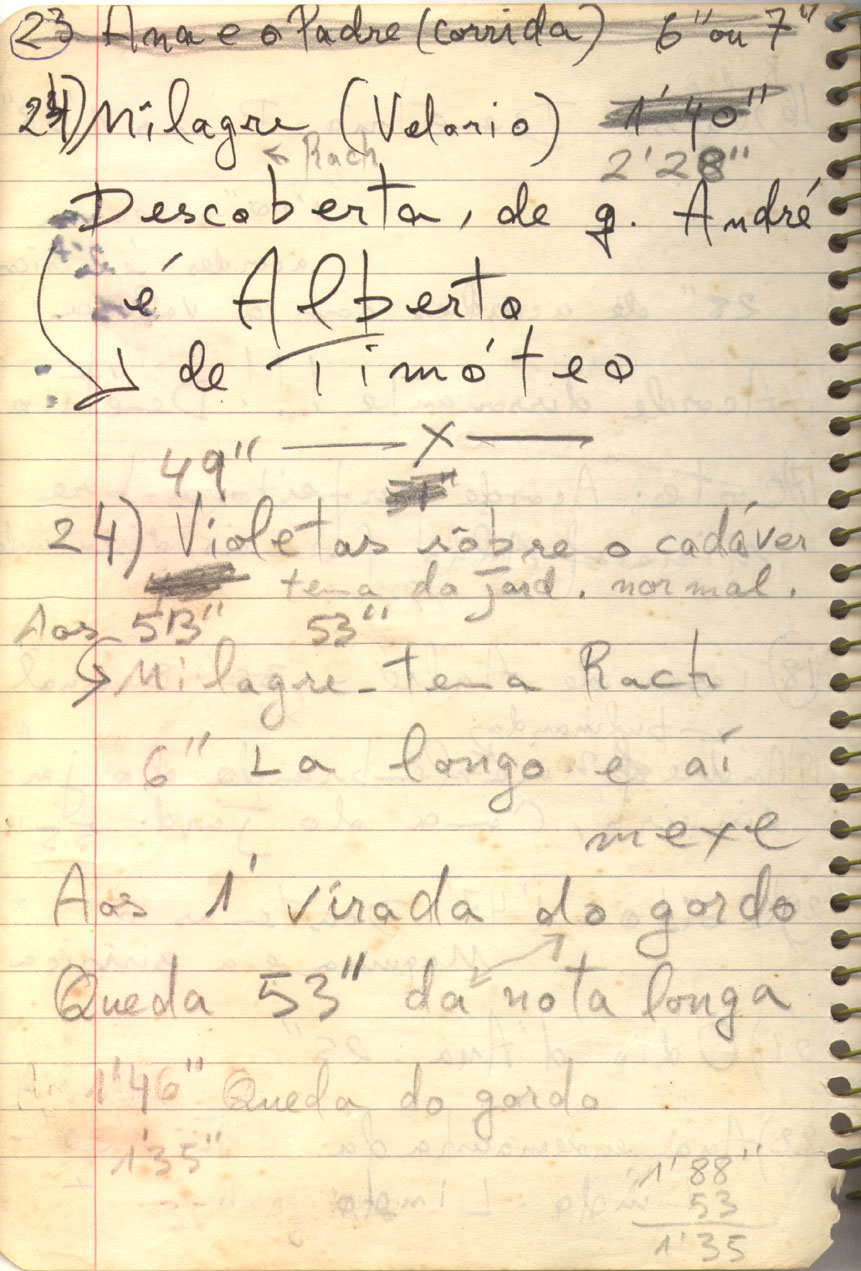 23 Ana e o Padre (corrida) 6" ou 7"
24) Milagre (Velario) 1'40"
← Rach 2'28"
Descoberta, de q. André
é Alberto
de Timóteo
—— X ——
49"
24) Violetas sôbre o cadáver
tema do jard. normal.
Aos 53" 53"
Milagre - tema Rach
6" La longo e aí
mexe
Aos 1' virada do gordo
Queda 53" da nota longa
1'46" Queda do gordo
1'35"
1'88"
53
1'35